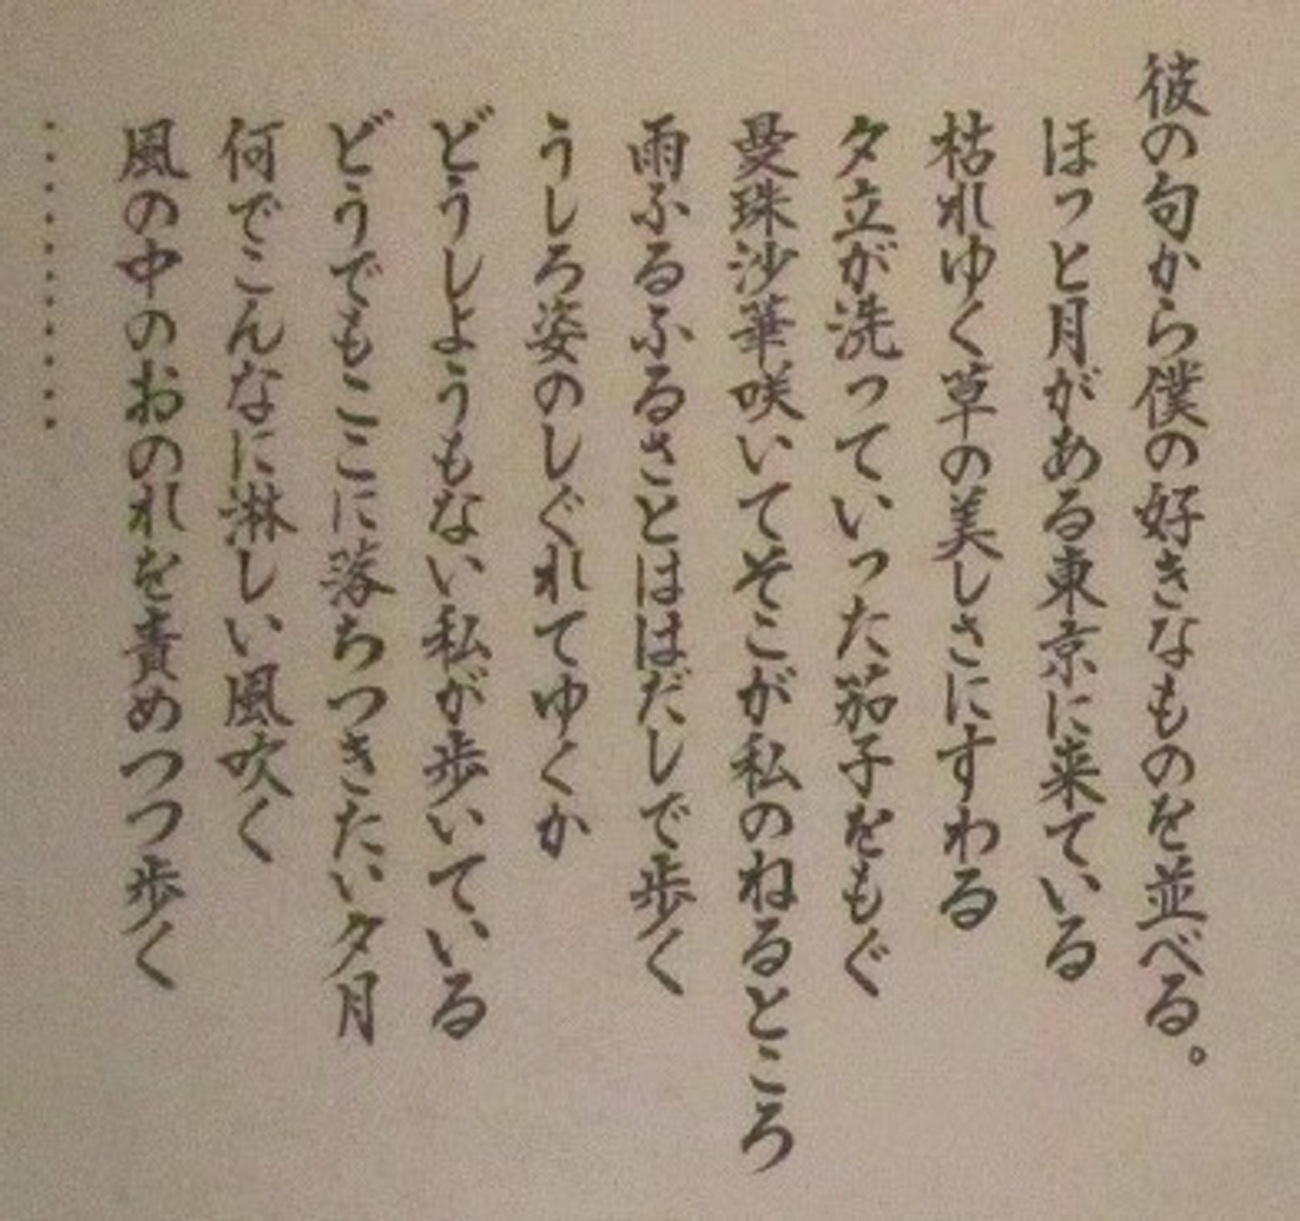 彼の句から僕の好きなものを並べる。
ほっと月がある東京に来ている
枯れゆく草の美しさにすわる
夕立が洗っていった茄子をもぐ
曼珠沙華咲いてそこが私のねるところ
雨ふるふるさとははだしで歩く
うしろ姿のしぐれてゆくか
どうしようもない私が歩いている
どうでもここに落ちつきたい夕月
何でこんなに淋しい風吹く
風の中のおのれを責めつつ歩く
・・・・・・・・・・